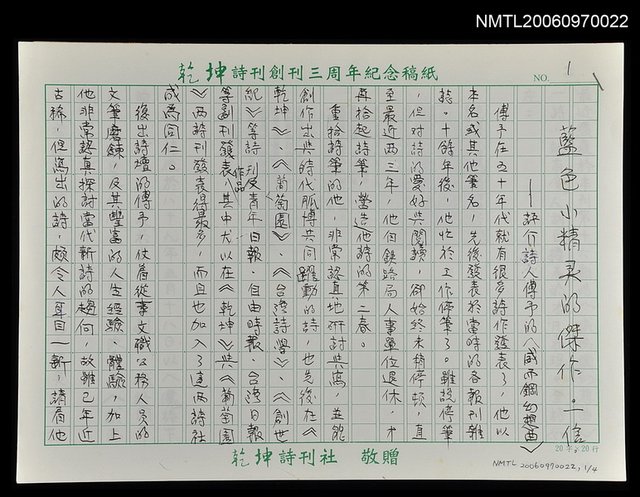 NMTL20060970022
乾坤詩刊創刊三周年紀念稿紙
NO. 1
藍色小精灵的傑作．一信
——評介詩人傅予的《威而鋼幻想曲》
傅予在五十年代就有很多詩作發表了，他以
本名或其他筆名，先後發表於當時的各報刊雜
誌。十餘年後，他忙於工作停筆了。雖說停筆
，但对詩的愛好與閱讀，卻始終未稍停頓，直
至最近兩三年，他自鉄路局人事單位退休，才
再拾起詩筆，營造他詩的第二春。
重拾詩筆的他，非常認真地研討與寫，並能
創作出與時代脈博共同躍動的詩，也先後在《
乾坤》、《葡萄園》、《台灣詩學》、《創世
紀》等詩刊及青年日報、自由時報、台灣日報
等副刊發表作品，其中尤以在《乾坤》與《葡萄園
》两詩刊發表得最多，而且也加入了這两詩社
成為同仁。
後出詩壇的傅予，仗恃從事文職公務人員的
文筆磨鍊，及其豐富的人生經驗、體驗，加上
他非常認真探討當代新詩的趨向，故雖已年近
古稀，但寫出的詩，頗令人耳目一新，請看他
20行
乾坤詩刊社 敬贈
NMTL20060970022, 1/4